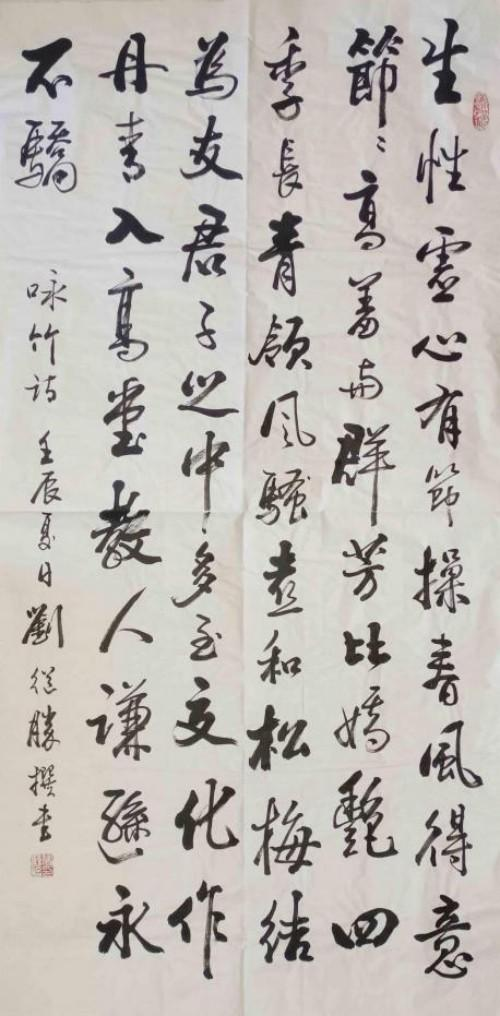 生性虚心有節操春風得意
節〻高羞与群芳比嬌艷四
季長青領風騷喜和松梅结
為友君子之中多至交化作
丹青入高堂教人谦遜永
不驕
咏竹诗 壬辰夏日 劉從勝撰書